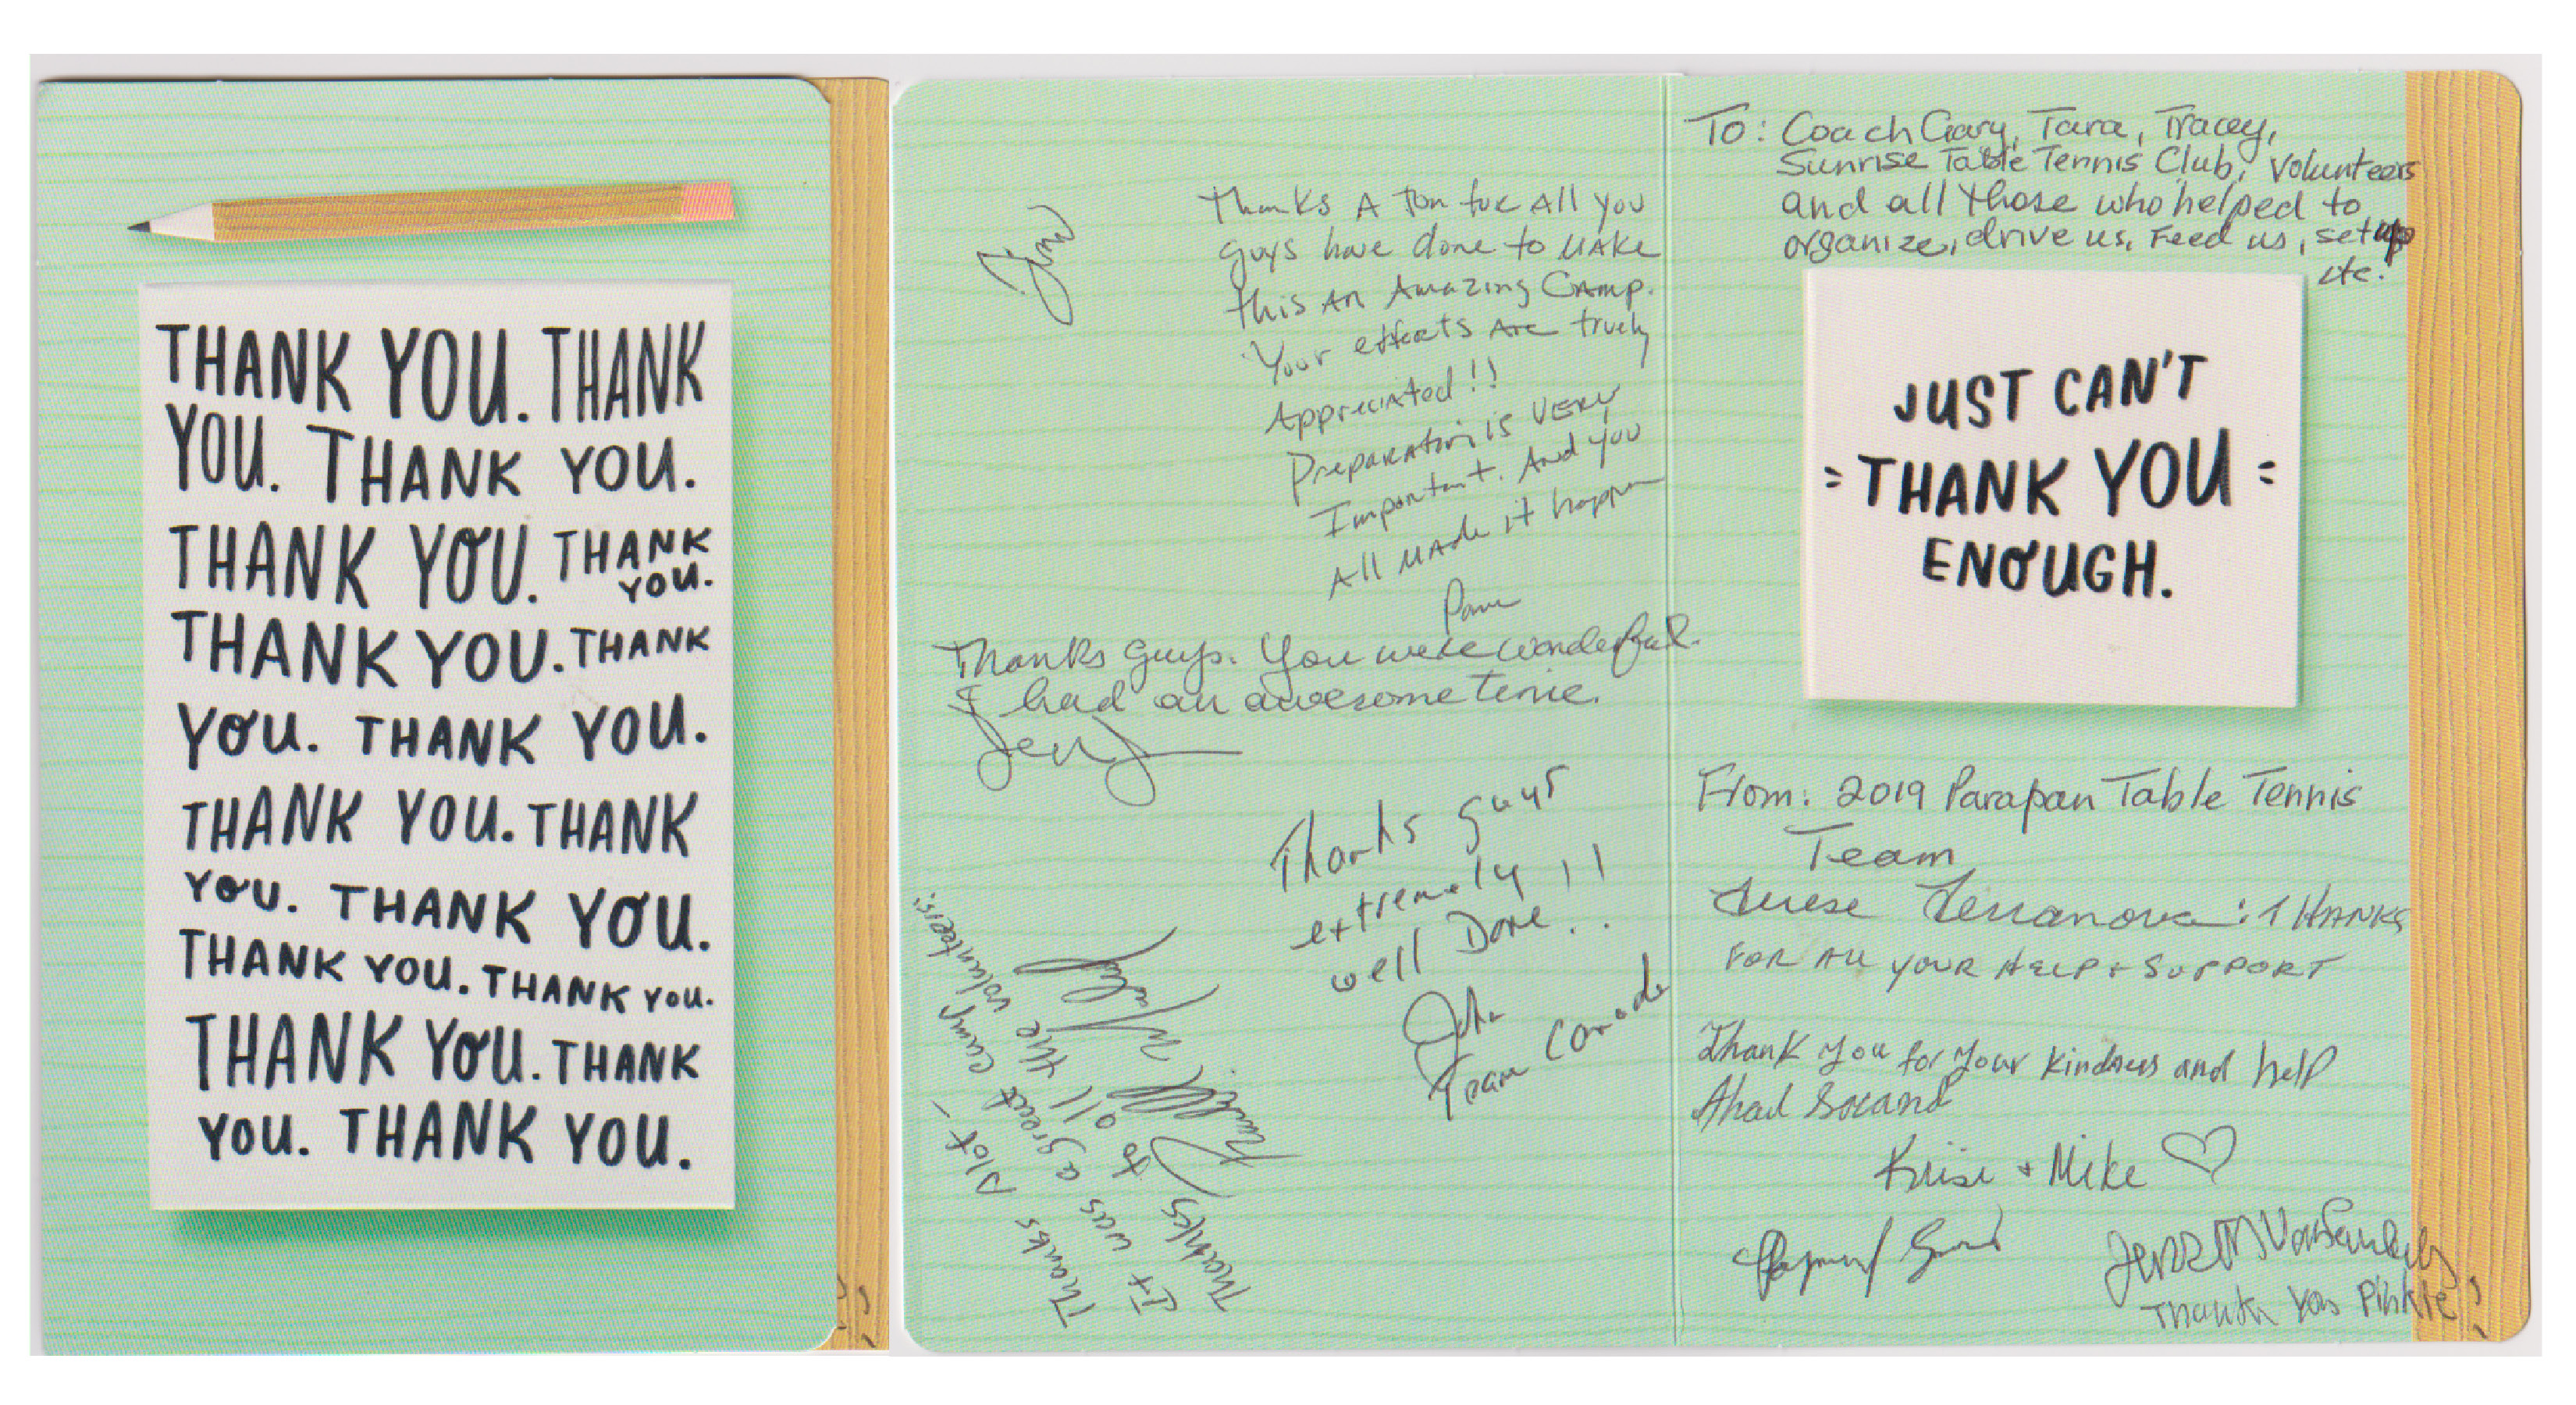 THANK YOU. THANK
YOU. THANK YOU.
THANK YOU. THANK
YOU.
THANK YOU. THANK
YOU. THANK YOU.
THANK YOU. THANK
YOU. THANK YOU.
THANK YOU. THANK YOU.
THANK YOU. THANK
YOU. THANK YOU.
Thanks A Ton for All You
guys have done to MAKE
this An Amazing Camp.
Your efforts Are truely
Appreciated!!
Preparation is VERY
Important. And you
All MAde it happen
Thanks guys. You were wonderful.
I had an awesome time.
Thanks guys
extremely!!
well Done..
John
Team Canada
Thanks alot -
It was a great camp
Thanks to all the volunteers.
To: Coach Gary, Tara, Tracey,
Sunrise Table Tennis Club, Volunteers
and all those who helped to
organize, drive us, Feed us, set up
etc.
JUST CAN'T
= THANK YOU =
ENOUGH.
From: 2019 Parapan Table Tennis
Team
Terranova: THANKS
FOR All YOUR HELP + SUPPORT
Thank you for your kindness and help
+ Mike
Thank You Pinkie!